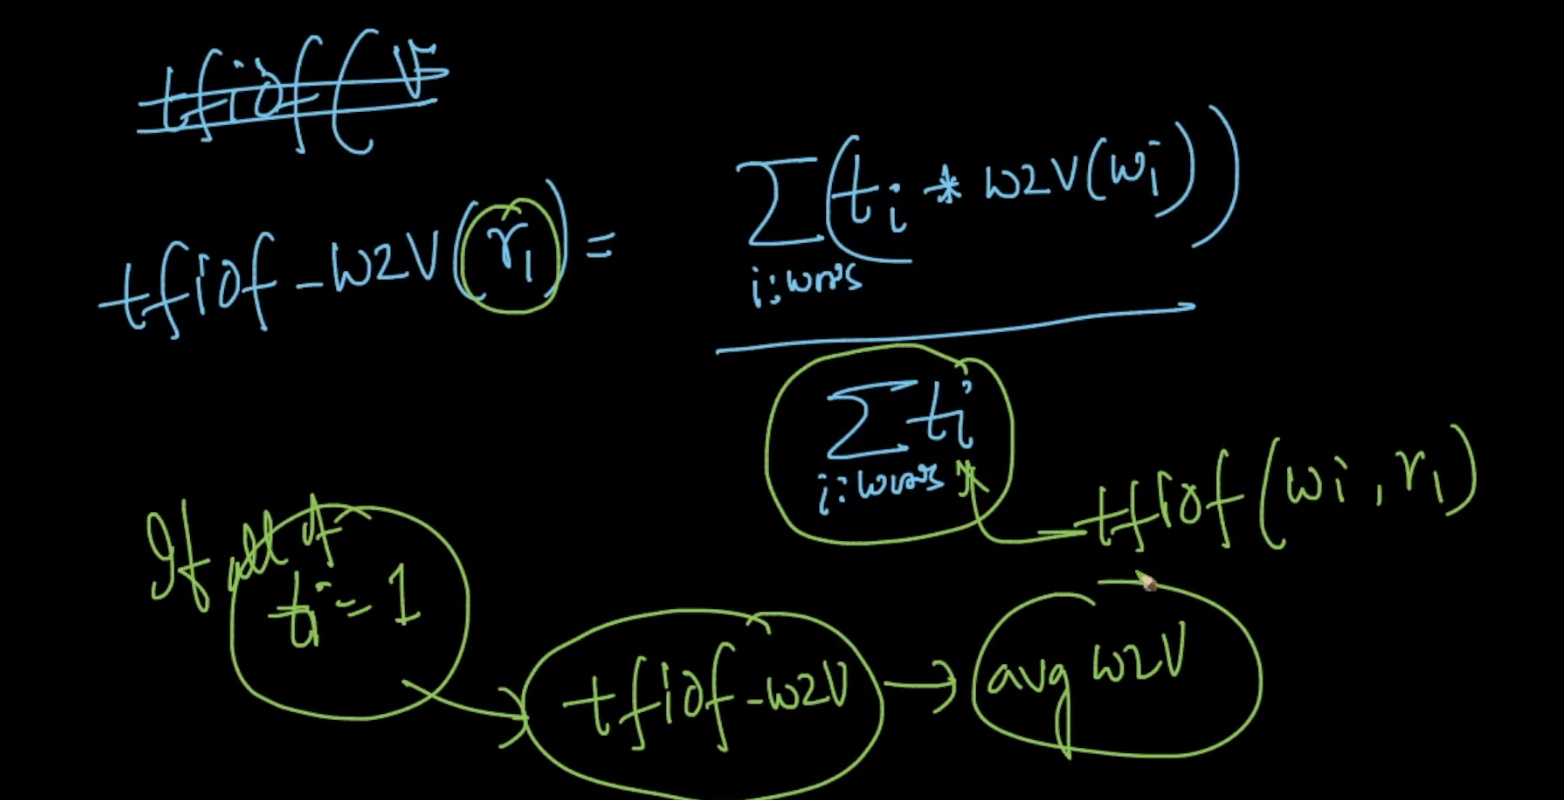 tfidf( v
tfidf-w2v(r₁) = Σ (tᵢ * w2v(wᵢ))
i: words
Σ tᵢ
i: words
tfidf(wi, r₁)
If all of
ti = 1
tfidf-w2v → avg w2v